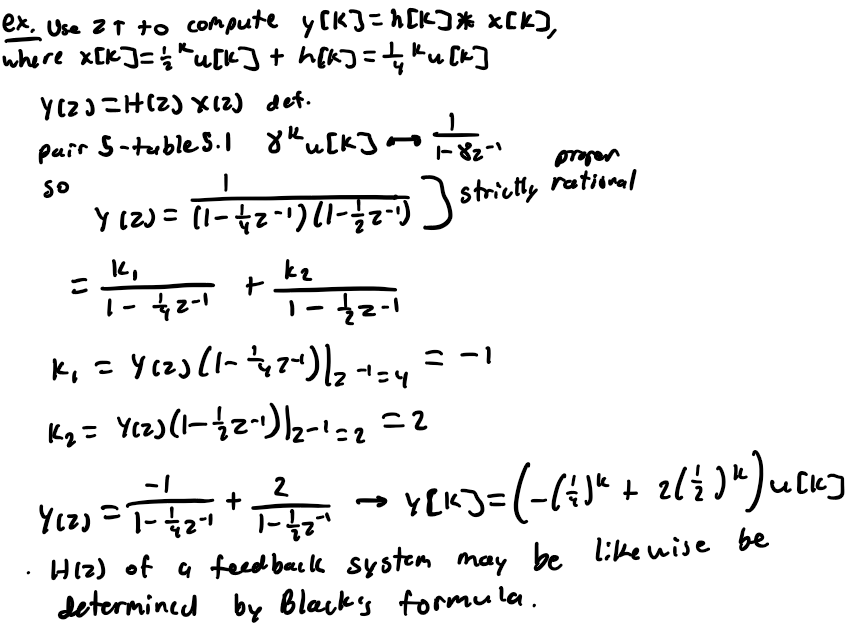 ex. Use ZT to compute y[k]=h[k]* x[k],
where x[k]=½^k u[k] + h[k]=¼^k u[k]
Y(z)=H(z) X(z) def.
pair 5-table 5.1 γ^k u[k] ↔ 1/(1-γz^-1)
so Y(z) = 1/((1-¼z^-1)(1-½z^-1)) } strictly proper rational
= k₁/(1-¼z^-1) + k₂/(1-½z^-1)
k₁ = Y(z)(1-¼z^-1)|z^-1=4 = -1
k₂ = Y(z)(1-½z^-1)|z^-1=2 = 2
Y(z) = -1/(1-¼z^-1) + 2/(1-½z^-1) → y[k]=(-(¼)^k + 2(½)^k)u[k]
· H(z) of a feedback system may be likewise be
determined by Black's formula.